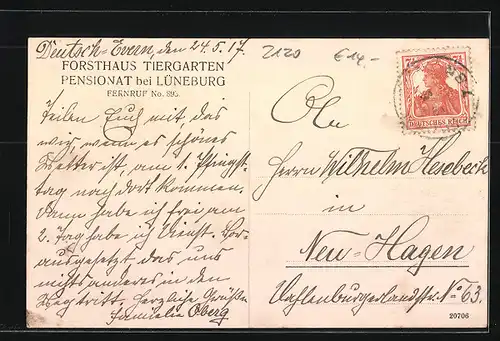 Deutsch-Evern, den 24.5.17.
FORSTHAUS TIERGARTEN
PENSIONAT bei LÜNEBURG
FERNRUF No. 895.
Teilen Euch mit das
wir, wenn es schönes
Wetter ist, am 1. Pfingst-
tag nach dort kommen.
Dann habe ich frei am
2. Tag habe ich Dienst. Vor-
ausgesetzt das uns
nichts anderes in den
Weg tritt. Herzliche Grüße
Familie Oberg
2120
€14.-
DEUTSCHES REICH
An
Herrn Wilhelm Hesebeck
in
Neu-Hagen
No 63.
20706